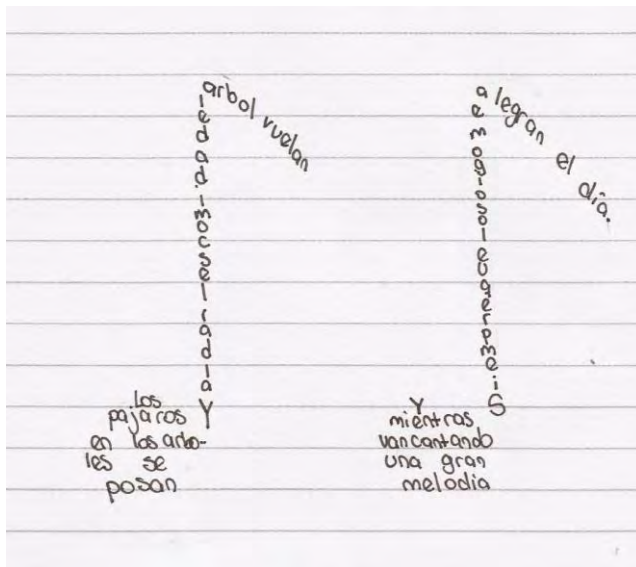 los
pajaros
en los arbo-
les se
posan
Y al darles comida del
arbol vuelan
Y
mientras
van cantando
una gran
melodia
Siempre que los oigo me
alegran el día.